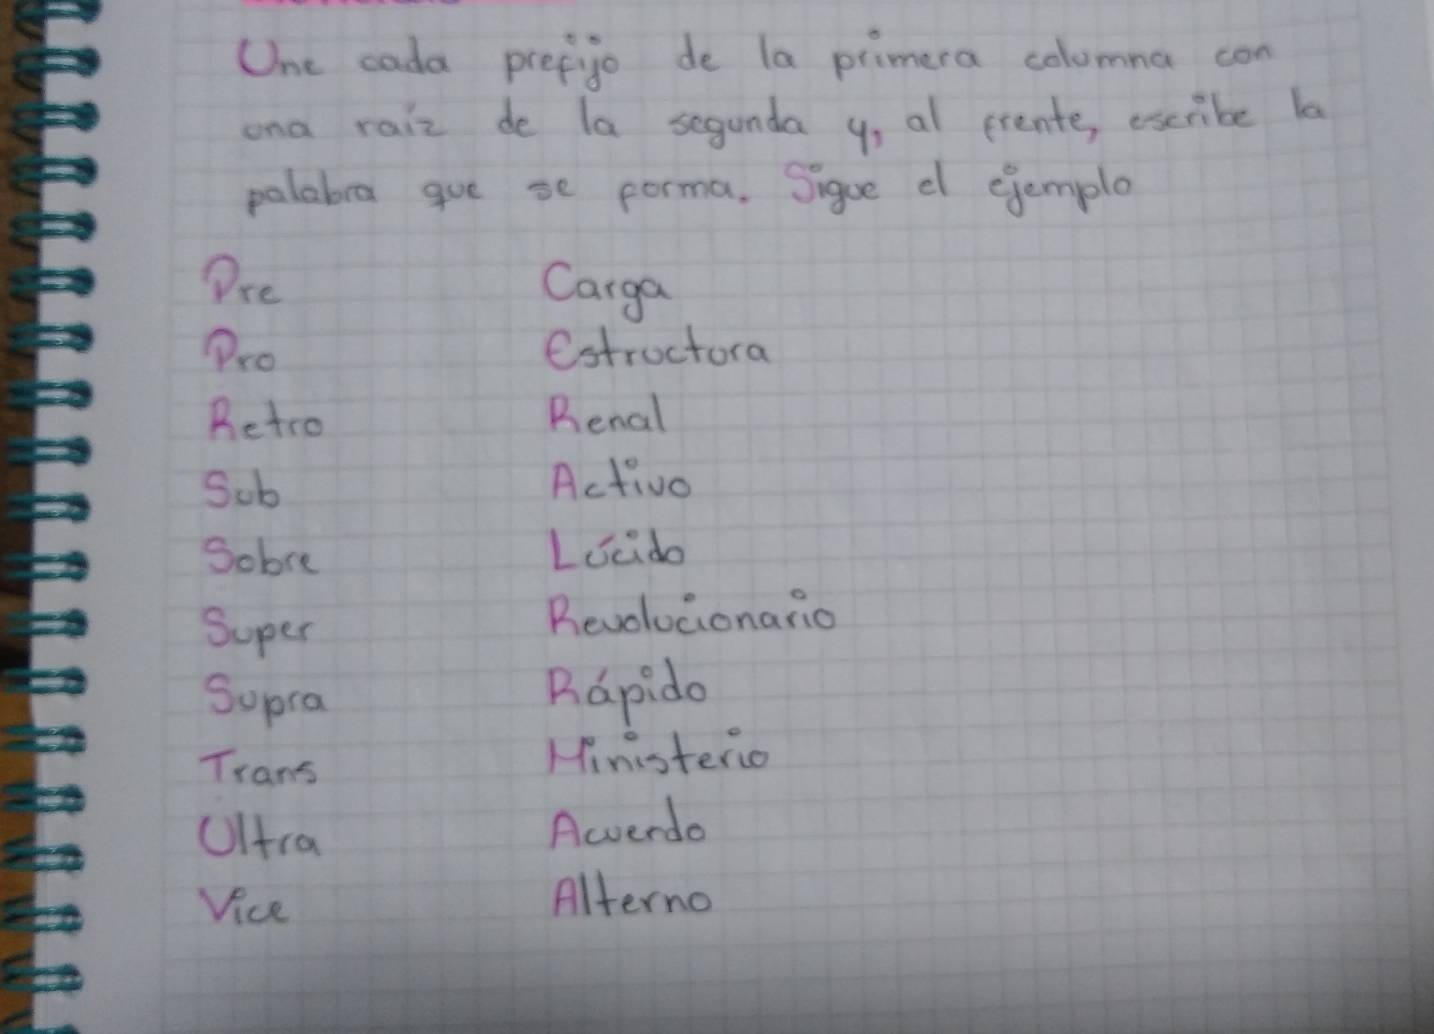 Une cada prefijo de la primera columna con
una raiz de la segunda y, al frente, escribe la
palabra que se forma. Sigue el ejemplo
Pre Carga
Pro Estructura
Retro Renal
Sub Activo
Sobre Lúcido
Super Revolucionario
Supra Rápido
Trans Ministerio
Ultra Acuerdo
Vice Alterno